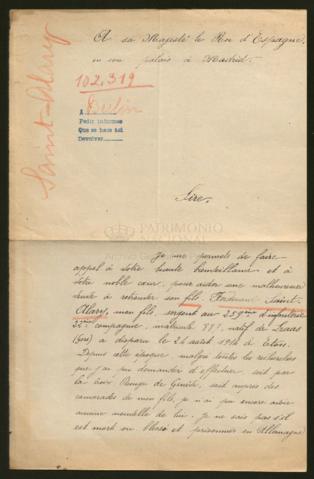 Saint-Alary
A sa Majesté le Roi d'Espagne,
en son palais à Madrid.
102.319
Berlin
A
Pedir informes
Que se hace así
Devolver
Sire,
PATRIMONIO
NACIONAL
Je me permets de faire
appel à Votre haute bienveillance et à
Votre noble cœur, pour aider une malheureuse
à retrouver son fils Ferdinand Saint-
Alary, mon fils, sergent au 259ème d'infanterie
22e compagnie, matricule 887, natif de
(Gers) a disparu le 24 août 1914 à Etain.
Depuis cette époque, malgré toutes les recherches
que j'ai pu demander d'effectuer, soit par
la Croix Rouge de Genève, soit auprès des
camarades de mon fils, je n'ai pu encore avoir
aucune nouvelle de lui. Je ne sais pas s'il
est mort ou blessé et prisonnier en Allemagne